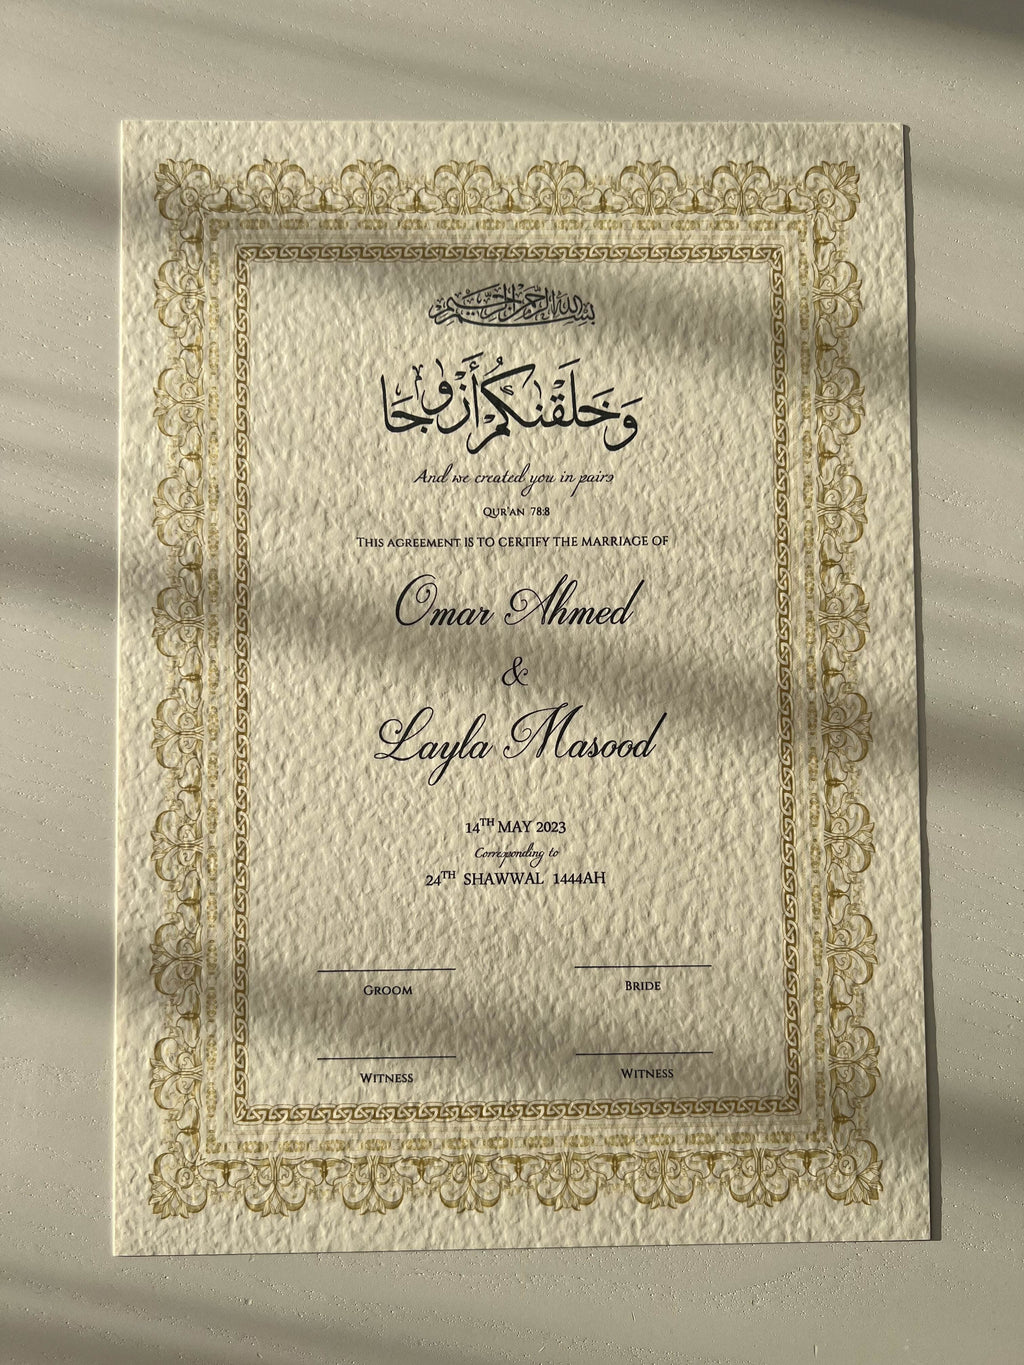 بسم الله الرحمن الرحيم
وَخَلَقْنَٰكُمْ أَزْوَٰجًا
And we created you in pairs
QUR'AN 78:8
THIS AGREEMENT IS TO CERTIFY THE MARRIAGE OF
Omar Ahmed
&
Layla Masood
14TH MAY 2023
Corresponding to
24TH SHAWWAL 1444AH
GROOM BRIDE
WITNESS WITNESS